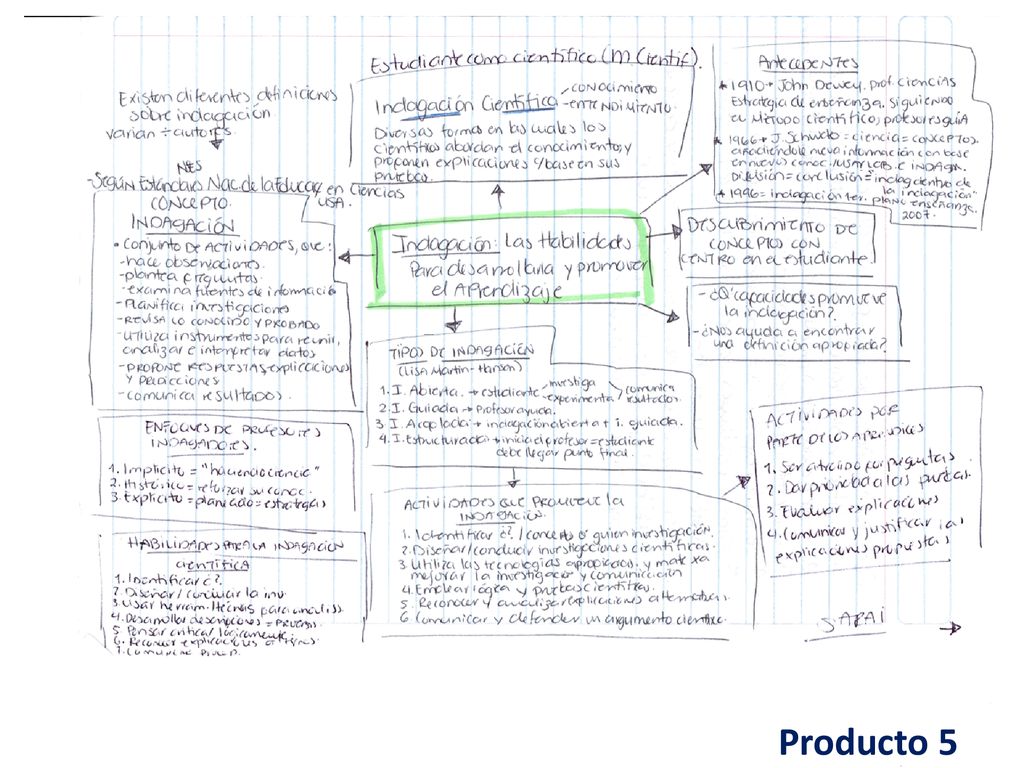 Estudiante como científico (m Cientif).
Indagación Científica
CONOCIMIENTO
ENTENDIMIENTO.
Diversas formas en las cuales los
científicos abordan el conocimiento, y
proponen explicaciones c/base en sus
pruebas.
Existen diferentes definiciones
sobre indagación
varían ÷ autores.
NES
-Según Estándares Nac. de la Educac en Ciencias
USA.
CONCEPTO.
INDAGACIÓN
• conjunto DE ACTIVIDADES, que:
-hace observaciones.
-plantea preguntas.
-examina fuentes de información
-PLANIFICA investigaciones
-REVISA LO CONOCIDO Y PROBADO
-UTILIZA instrumentos para reunir,
analizar e interpretar datos
-PROPONE RESPUESTAS, explicaciones
Y PREDICCIONES
-comunica resultados.
Antecedentes
1910 John Dewey, prof. ciencias
Estrategia de enseñanza. siguiendo
el Método científico, profesor es guía
1966 J. Schwab = ciencia = CONCEPTOS.
nueva información con base
en nuevos conoc. /USAR LAB. E INDAGA.
= conclusión = "indag dentro de
la indagación"
1996 = indagación
2007.
Indagación: Las Habilidades
Para desarrollarla y promover
el Aprendizaje
DESCUBRIMIENTO DE
CONCEPTOS CON
CENTRO en el estudiante
-¿Q' capacidades promueve
la indagación?.
-¿Nos ayuda a encontrar
una definición apropiada?
TIPOS DE INDAGACIÓN
(Lisa Martin-Hansen)
1. I. Abierta. → estudiante investiga experimenta comunica resultados.
2. I. Guiada → Profesor ayuda.
3. I. Acoplada → indagación abierta + i. guiada.
4. I. Estructurada → inicia el profesor = estudiante
debe llegar punto final.
ENFOQUES DE PROFESORES
INDAGADORES.
1. Implícito = "haciendo ciencia"
2. Histórico = reforzar su conoc.
3. Explícito = planeado = estrategias
HABILIDADES PARA LA INDAGACION
CIENTÍFICA
1. Identificar ¿?.
2. Diseñar / conducir la inv.
3. Usar herram. /técnicas para
4. Desarrollar descripciones =
5. Pensar crítica/ lógicamente
6. Reconocer explicaciones
7.
ACTIVIDADES QUE PROMUEVE LA
INDAGACIÓN.
1. Identificar ¿?. /conceptos q' guíen investigación.
2. Diseñar/conducir investigaciones científicas.
3. Utiliza las tecnologías apropiadas. y mate xa
mejorar la investigación y comunicación
4. Emplear lógica y pruebas científicas.
5. Reconocer y analizar explicaciones alternativas.
6. Comunicar y defender un argumento científico.
ACTIVIDADES POR
PARTE DE LOS APRENDICES
1. Ser atraído por preguntas.
2. Dar prioridad a las pruebas.
3. Evaluar explicaciones
4. Comunicar y justificar las
explicaciones propuestas
Producto 5